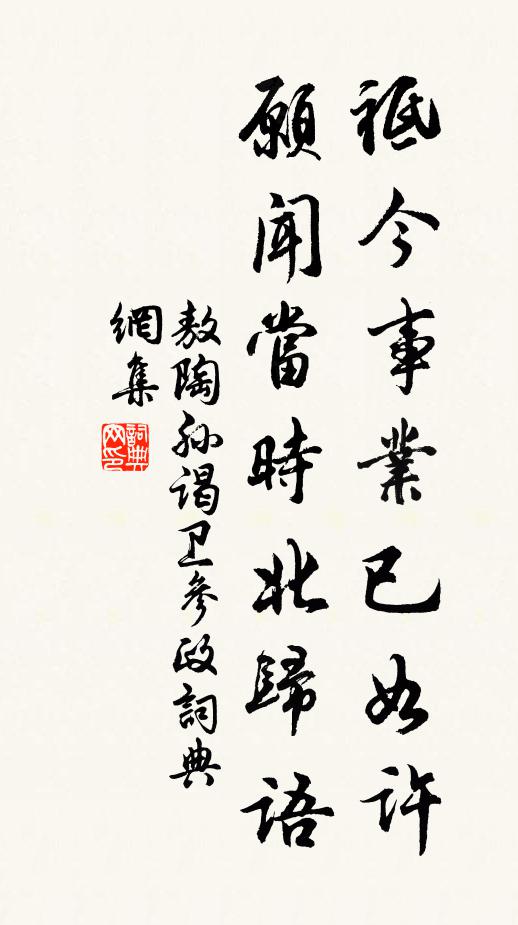 祗今事業已如許
願聞當時北歸語
敖陶孙謁卫參政詞典
網集
詞典網印